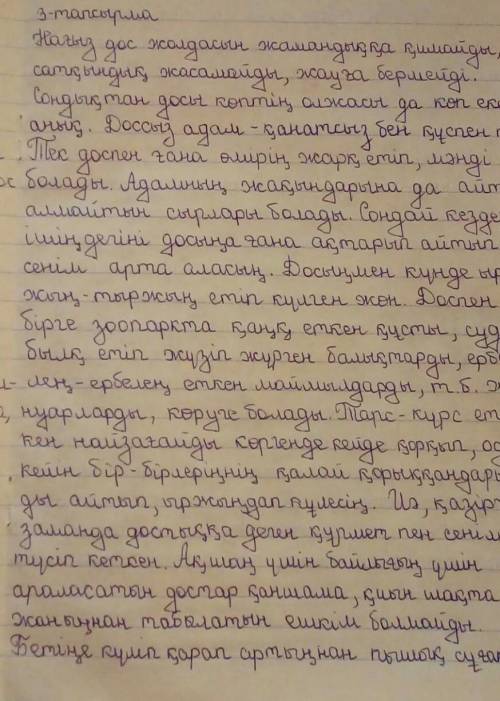 3-тапсырма
Нағыз дос жолдасын жамандыққа қимайды,
сатқындық жасамайды, жауға бермейді.
Сондықтан досы көптің олжасы да көп ек
анық. Доссыз адам - қанатсыз бен құспен т
Тек доспен ғана өмірің жарқ етіп, мәнді
ос болады. Адамның жақындарына да айт
алмайтын сырлары болады. Сондай кезде
ішіңдегіні досыңа ғана ақтарып айтып
сенім арта аласың. Досыңмен күнде ыр
жың-тыржың етіп күлген жөн. Доспен
бірге зоопаркта қаңқ еткен құсты, суд
былқ етіп жүзіп жүрген балықтарды, ербе
лең-ербелең еткен маймылдарды, т.б. ж
нуарларды, көруге болады. Тарс-күрс ет
кен найзағайды көргенде кейде қорқып, ос
кейін бір-бірлеріңнің қалай қорыққандары
ды айтып, ыржыңдап күлесің. Иә, қазір
заманда достыққа деген құрмет пен сенім
түсіп кеткен. Ақшаң үшін байлығың үшін
араласатын достар қаншама, қиын шақта
жаныңнан табылатын ешкім болмайды.
Бетіңе күліп қарап артыңнан пышақ сұға